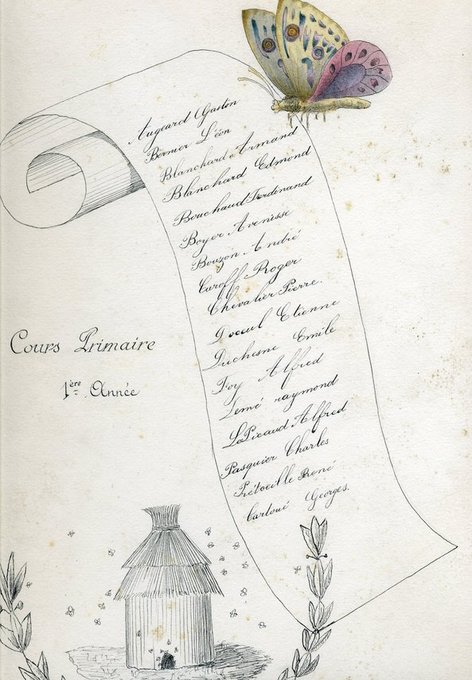 Augeard Gaston
Bernier Léon
Blanchard Armand
Blanchard Edmond
Bouchaud Ferdinand
Boyer
Bouzon André
Caroff Roger
Chevalier Pierre.
Etienne
Duchesne Emile
Foy Alfred
Lemé raymond
LaPicaud Alfred
Pasquier Charles
René
Georges.
Cours Primaire
1ère Année